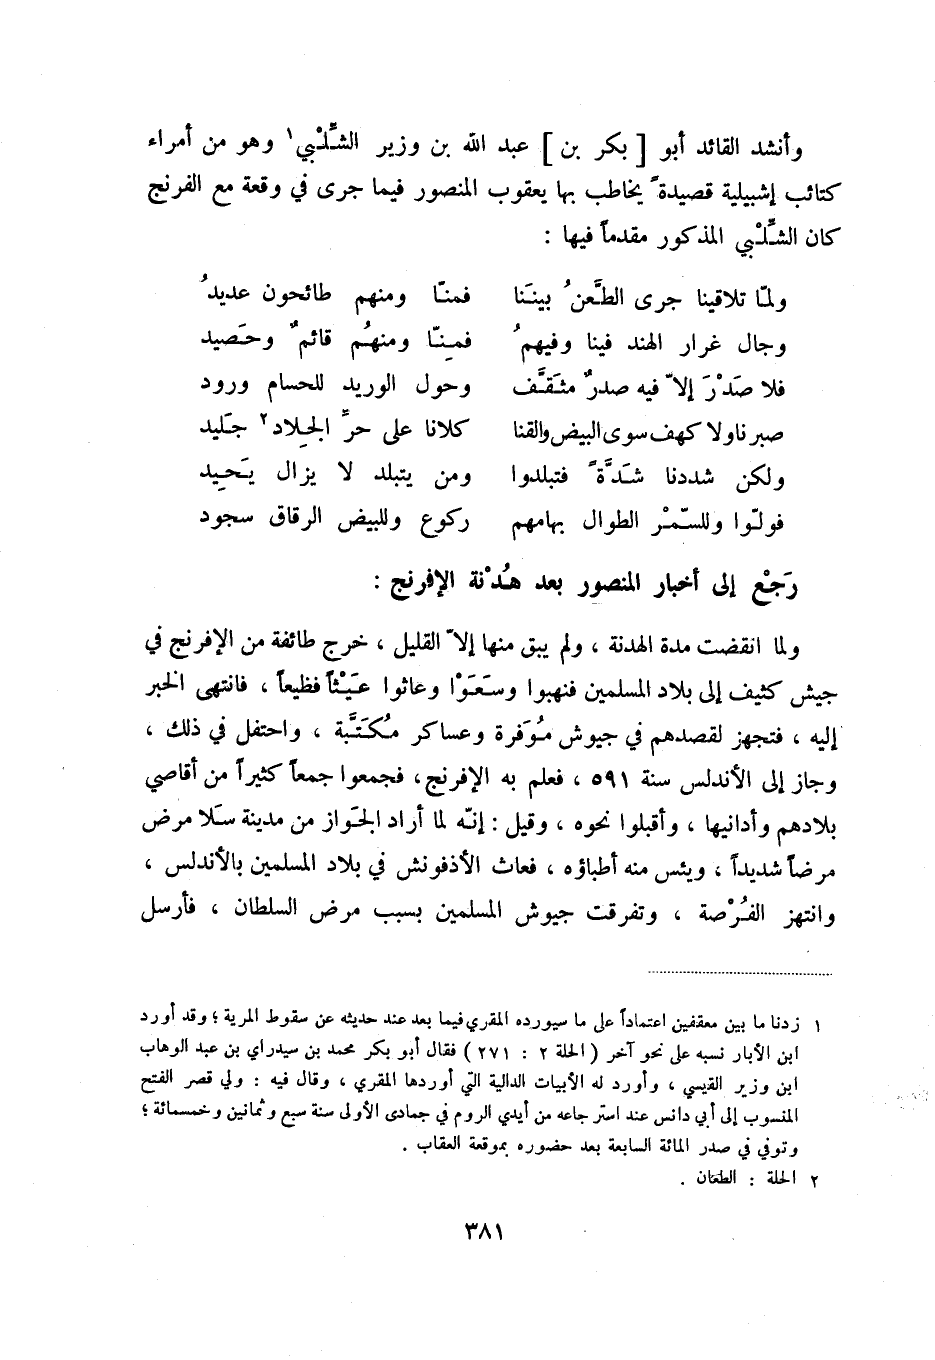 وأنشد القائد أبو [ بكر بن ] عبد الله بن وزير الشِّلْبي١ وهو من أمراء
كتائب إشبيلية قصيدةً يخاطب بها يعقوب المنصور فيما جرى في وقعة مع الفرنج
كان الشِّلْبي المذكور مقدماً فيها :
ولمّا تلاقينا جرى الطَّعنُ بينَنا فمنّا ومنهم طائحون عديدُ
وجال غرار الهند فينا وفيهمُ فمِنّا ومنهُم قائمٌ وحَصيد
فلا صَدْرَ إلاّ فيه صدرٌ مثقَّف وحول الوريد للحسام ورود
صبرنا ولا كهف سوى البيض والقنا كلانا على حرِّ الجِلاد٢ جَليد
ولكن شددنا شَدَّةً فتبلدوا ومن يتبلد لا يزال يَحيد
فولّوا وللسّمْر الطوال بهامهم ركوع وللبيض الرقاق سجود
رَجَعْ إلى أخبار المنصور بعد هُدْنة الإفرنج :
ولما انقضت مدة الهدنة ، ولم يبق منها إلاّ القليل ، خرج طائفة من الإفرنج في
جيش كثيف إلى بلاد المسلمين فنهبوا وسَعَوْا وعاثوا عَيْثاً فظيعاً ، فانتهى الخبر
إليه ، فتجهز لقصدهم في جيوش مُوَفرة وعساكر مُكَتَّبة ، واحتفل في ذلك ،
وجاز إلى الأندلس سنة ٥٩١ ، فعلم به الإفرنج ، فجمعوا جمعاً كثيراً من أقاصي
بلادهم وأدانيها ، وأقبلوا نحوه ، وقيل : إنّه لما أراد الجَواز من مدينة سَلا مرض
مرضاً شديداً ، ويئس منه أطباؤه ، فعاث الأذفونش في بلاد المسلمين بالأندلس ،
وانتهز الفُرْصة ، وتفرقت جيوش المسلمين بسبب مرض السلطان ، فأرسل
١ زدنا ما بين معقفين اعتماداً على ما سيورده المقري فيما بعد عند حديثه عن سقوط المرية ؛ وقد أورد
ابن الأبار نسبه على نحو آخر ( الحلة ٢ : ٢٧١ ) فقال أبو بكر محمد بن سيدراي بن عبد الوهاب
ابن وزير القيسي ، وأورد له الأبيات الدالية التي أوردها المقري ، وقال فيه : ولي قصر الفتح
المنسوب إلى أبي دانس عند استرجاعه من أيدي الروم في جمادى الأولى سنة سبع وثمانين وخمسمائة ؛
وتوفي في صدر المائة السابعة بعد حضوره بموقعة العقاب .
٢ الحلة : الطعان .
٣٨١